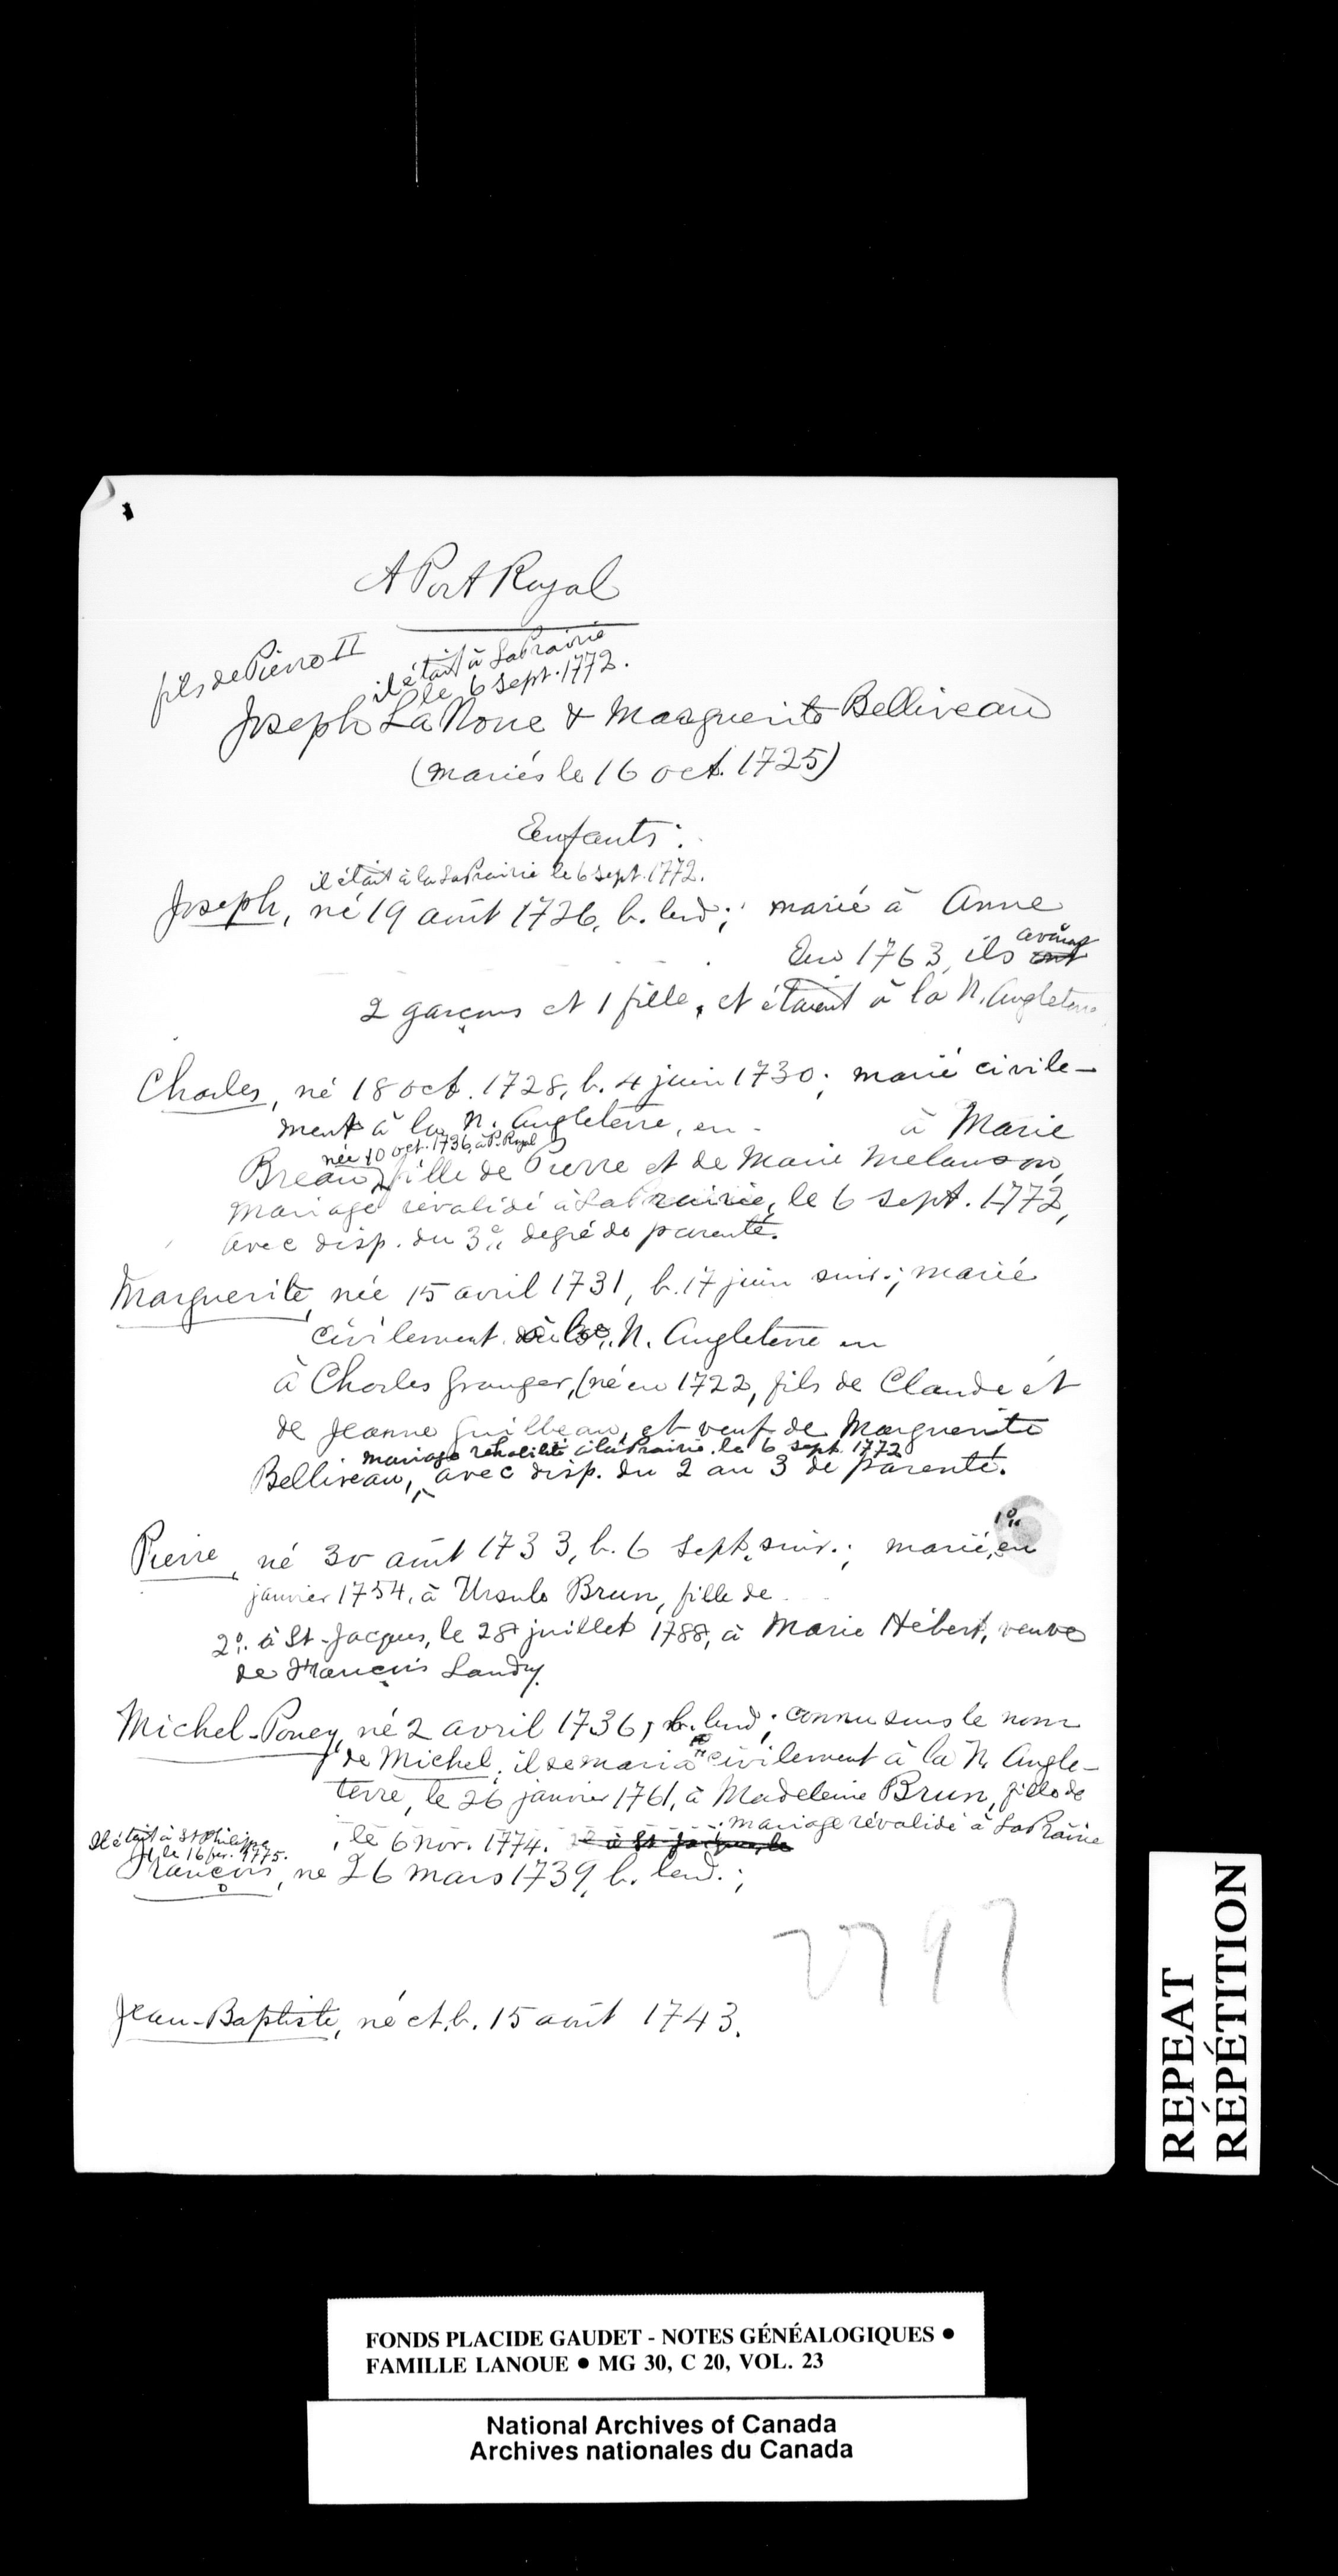 A Port Royal
fils de Pierre II
il était à LaPrairie
le 6 sept. 1772.
Joseph LaNoue & Marguerite Belliveau
(mariés le 16 oct. 1725)
Enfants:
il était à la LaPrairie le 6 sept. 1772.
Joseph, né 19 août 1726, b. lend; marié à Anne
En 1763, ils ont avaient
2 garçons et 1 fille, et étaient à la N. Angleterre
Charles, né 18 oct. 1728, b. 4 juin 1730; marié civile-
ment à la N. Angleterre, en à Marie
née 10 oct. 1736, à P. Royal
Breau, fille de Pierre et de Marie Melanson,
mariage révalidé à LaPrairie, le 6 sept. 1772,
avec disp. du 3e degré de parenté.
Marguerite, née 15 avril 1731, b. 17 juin suiv.; mariée
civilement à la N. Angleterre en
à Charles Granger, (né en 1722, fils de Claude et
de Jeanne Guilbeau, et veuf de Marguerite
mariage rehabilité à LaPrairie le 6 sept. 1772
Belliveau, avec disp. du 2 au 3 de parenté.
1o
Pierre, né 30 août 1733, b. 6 sept. suiv.; marié, en
janvier 1754, à Ursule Brun, fille de
2o. à St-Jacques, le 28 juillet 1788, à Marie Hébert, veuve
de François Landry.
Michel-Poney, né 2 avril 1736, b. lend; connu sous le nom
de Michel, il se maria civilement à la N. Angle-
terre, le 26 janvier 1761, à Madeleine Brun, fille de
mariage révalidé à LaPrairie
, le 6 nov. 1774. 2e à St Jacques, le
Il était à St Philippe
le 16 fev. 1775.
François, né 26 mars 1739, b. lend.;
2797
Jean-Baptiste, né et b. 15 août 1743.
REPEAT
RÉPÉTITION
FONDS PLACIDE GAUDET - NOTES GÉNÉALOGIQUES ●
FAMILLE LANOUE ● MG 30, C 20, VOL. 23
National Archives of Canada
Archives nationales du Canada